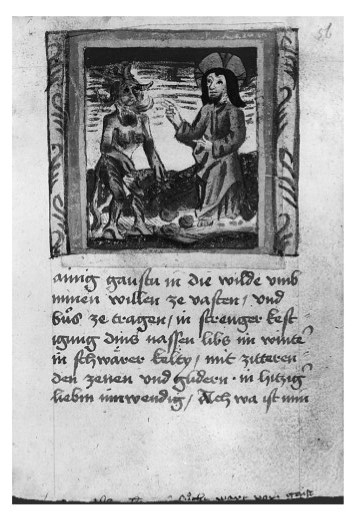 56
ainig gaustu in die wilde vmb
minen willen ze vasten / vnd
bůs ze tragen / in strenger kest
igung dins nassen libs im winter
in schwärer kelty / mit zitteren
den zenen vnd glidern · in hitzig
liebin inwendig / Ach wa ist nun